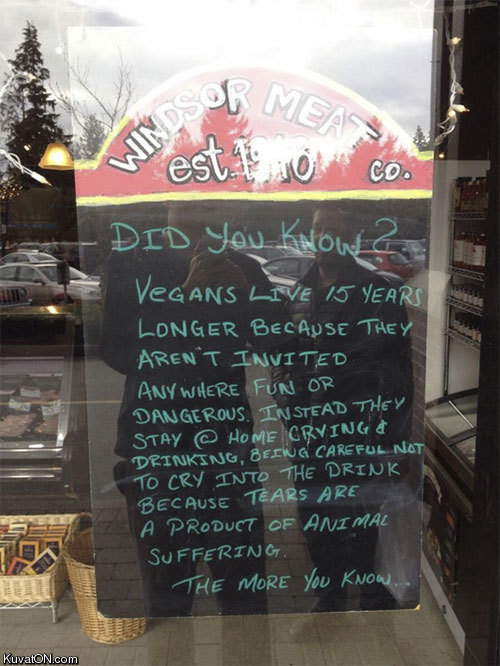 WINDSOR MEAT
est. 1910 co.
DID YOU KNOW?
VEGANS LIVE 15 YEARS
LONGER BECAUSE THEY
AREN'T INVITED
ANYWHERE FUN OR
DANGEROUS. INSTEAD THEY
STAY @ HOME CRYING &
DRINKING, BEING CAREFUL NOT
TO CRY INTO THE DRINK
BECAUSE TEARS ARE
A PRODUCT OF ANIMAL
SUFFERING.
THE MORE YOU KNOW...
KuvatON.com